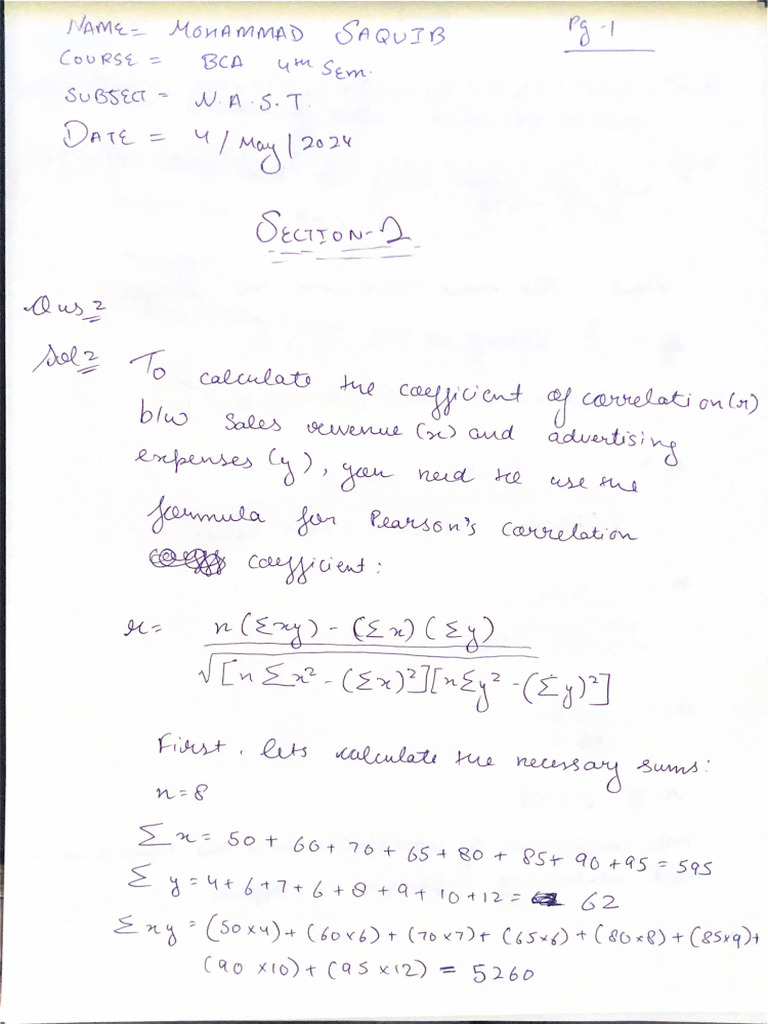 NAME = MOHAMMAD SAQUIB
Pg-1
COURSE = BCA 4th Sem.
SUBJECT = N.A.S.T.
DATE = 4/May/2024
SECTION-2
Qus 2
Sol 2 To calculate the coefficient of correlation (r)
b/w sales revenue (x) and advertising
expenses (y), you need to use the
formula for Pearson's correlation
coefficient:
r = n(Σxy) - (Σx)(Σy) / √[nΣx² - (Σx)²][nΣy² - (Σy)²]
First, lets calculate the necessary sums:
n=8
Σx = 50 + 60 + 70 + 65 + 80 + 85 + 90 + 95 = 595
Σy = 4 + 6 + 7 + 6 + 8 + 9 + 10 + 12 = 62
Σxy = (50×4) + (60×6) + (70×7) + (65×6) + (80×8) + (85×9) +
(90×10) + (95×12) = 5260